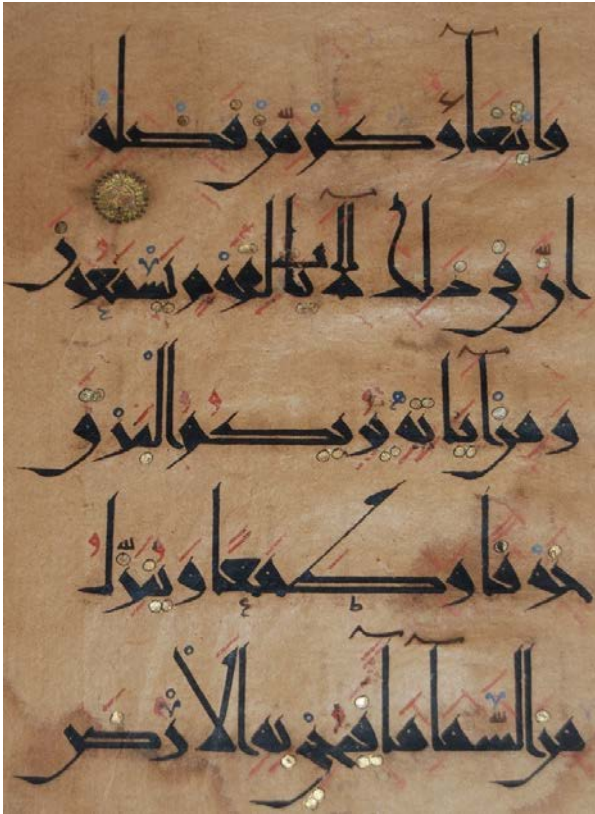 وَابْتِغَآؤُكُمْ مِّنْ فَضْلِهِ
اِنَّ فِي ذٰلِكَ لَآيَاتٍ لِقَوْمٍ يَسْمَعُونَ
وَمِنْ آيَاتِهِ يُرِيكُمُ الْبَرْقَ
خَوْفًا وَطَمَعًا وَيُنَزِّلُ
مِنَ السَّمَآءِ مَآءً فَيُحْيِي بِهِ الْاَرْضَ